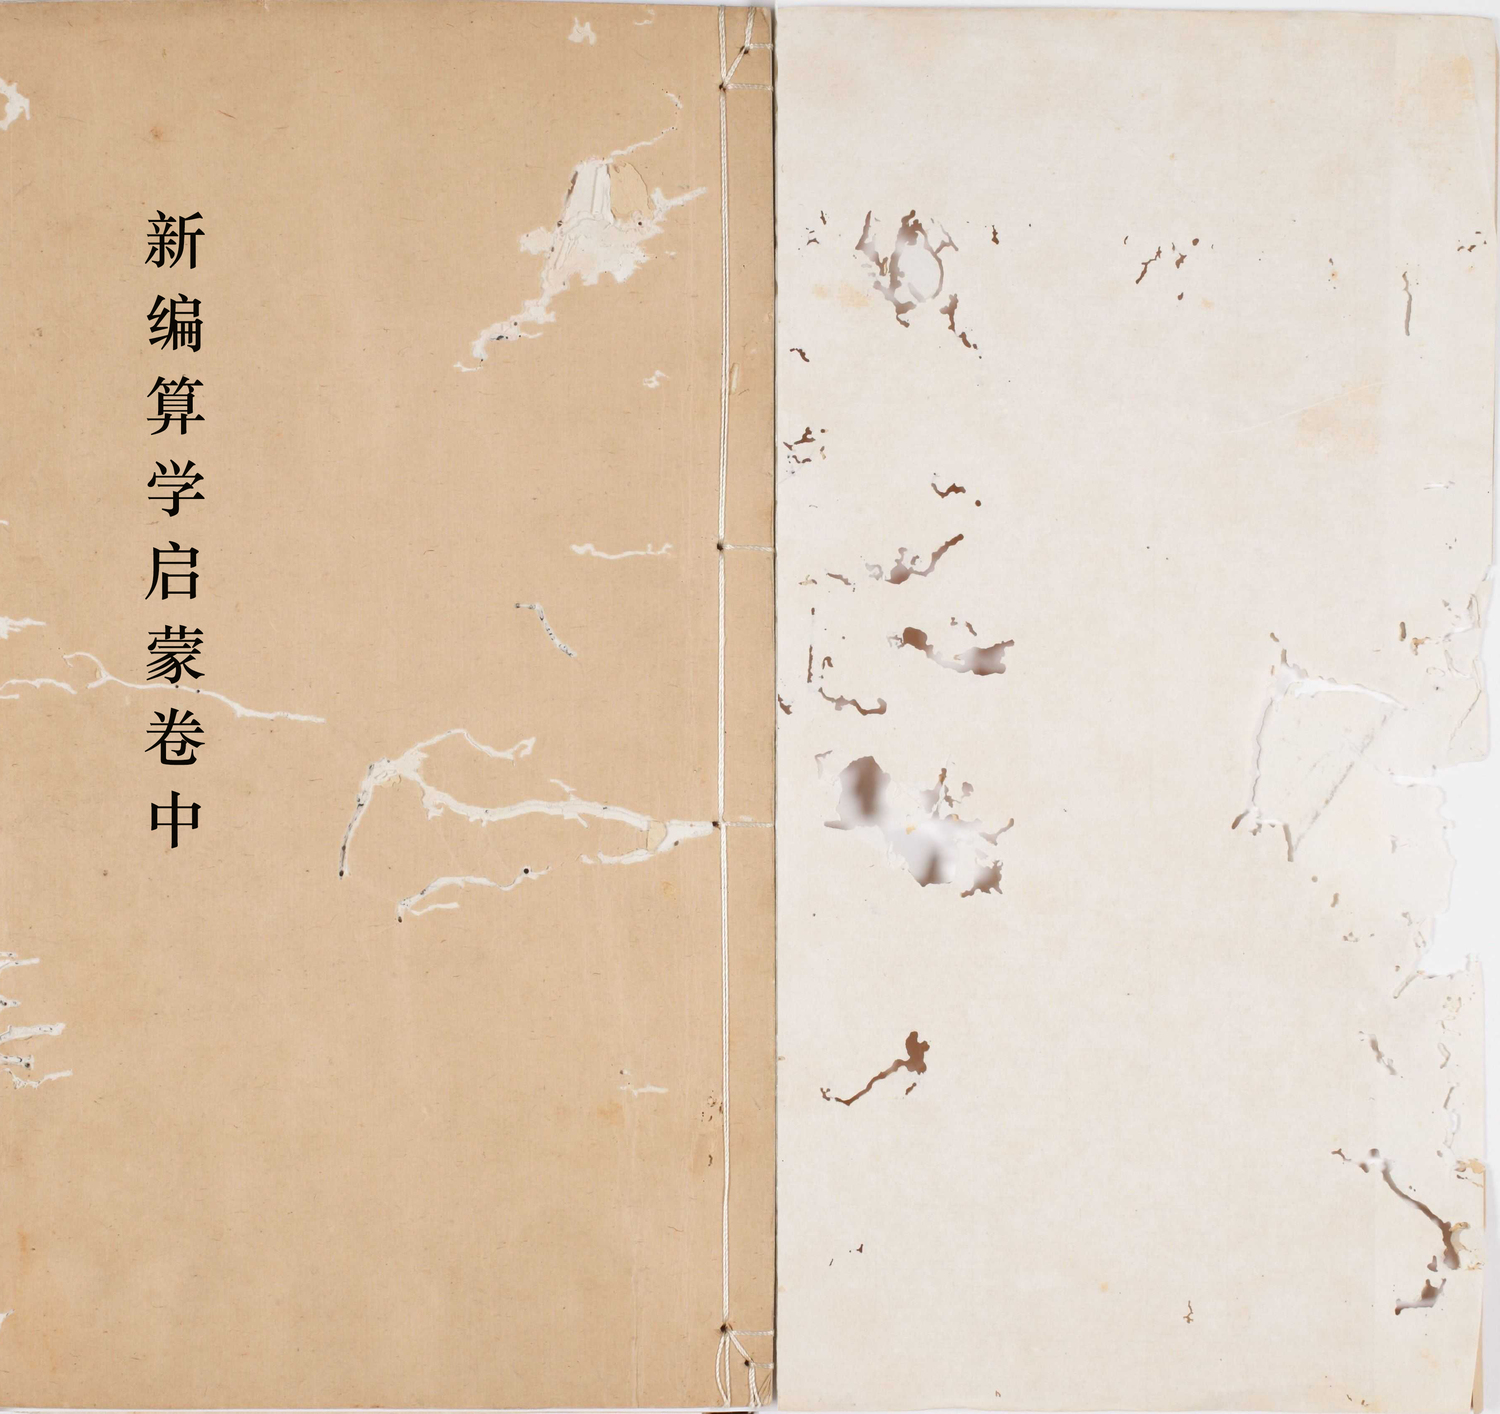 新编算学启蒙卷中